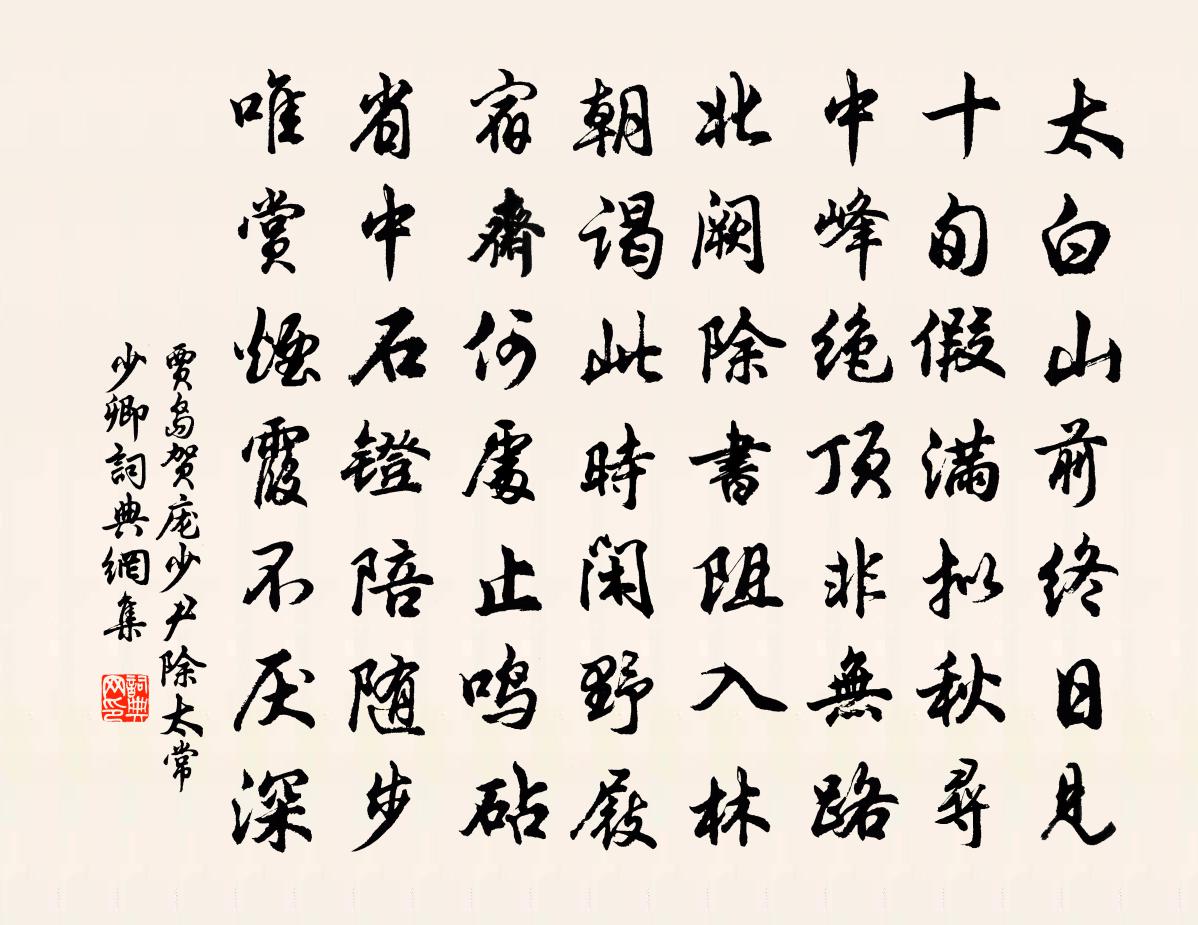 太白山前终日见
十旬假满拟秋寻
中峰绝顶非無路
北阙除書阻入林
朝谒此時闲野屐
宿齋何處止鸣砧
省中石镫陪随步
唯赏煙霞不厌深
贾岛贺庞少尹除太常
少卿詞典網集
詞典
网印